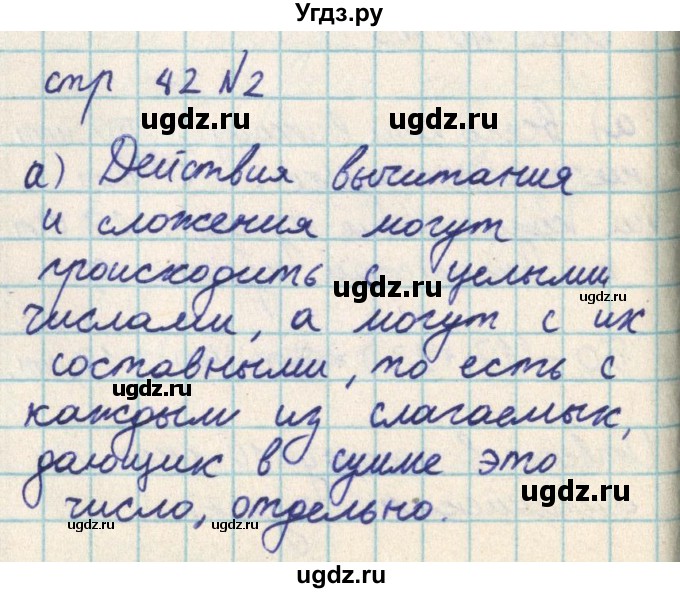 Угдз.ру
стр 42 №2
ugdz.ru
а) Действия вычитания
ugdz.ru
и сложения могут
происходить с целыми
ugdz.ru
ugdz.ru
числами, а могут с их
составными, то есть с
ugdz.ru
каждым из слагаемых,
дающих в сумме это
ugdz.ru
число, отдельно.
ugdz.ru
ugdz.ru
ugdz.ru